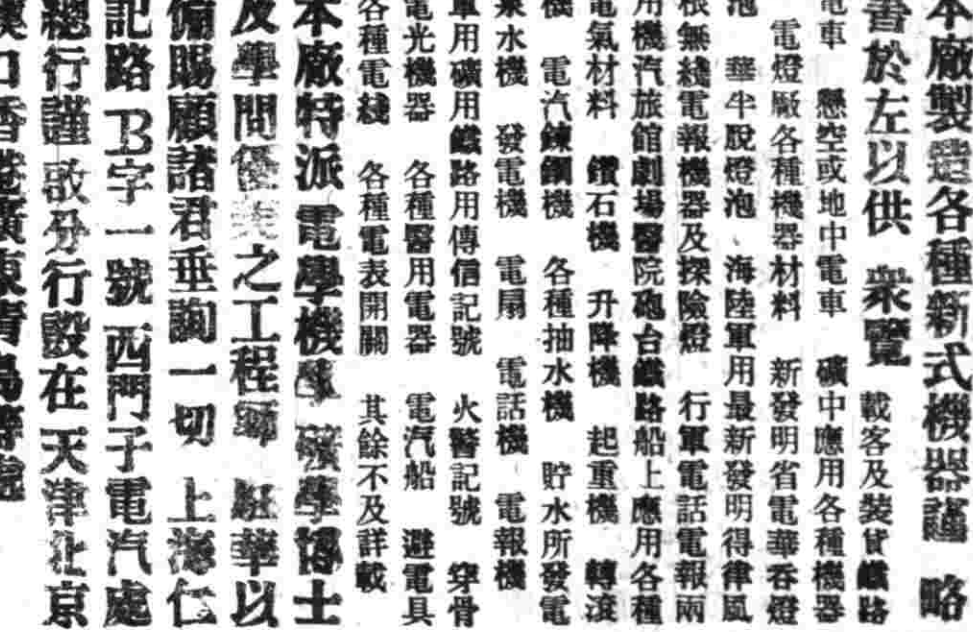 本廠製造各種新式機器謹 略
書於左以供 衆覽 載客及裝貨鐵路
電車 懸空或地中電車 礦中應用各種機器
電燈廠各種機器材料 新發明省電華吞燈
泡 華半脫燈泡 海陸軍用最新發明得律風
根無綫電報機器及探險燈 行軍電話電報兩
用機汽旅館劇場醫院砲台鐵路船上應用各種
電氣材料 鑽石機 升降機 起重機 轉滾
機 電汽鍊鋼機 各種抽水機 貯水所發電
水機 發電機 電扇 電話機 電報機
軍用礦用鐵路用傳信記號 火警記號 穿骨
電光機器 各種醫用電器 電汽船 避電具
各種電綫 各種電表開關 其餘不及詳載
本廠特派電學機學礦學博士
及學問優美之工程師駐華以
備賜顧諸君垂詢一切 上海仁
記路B字一號西門子電汽處
總行謹啟分行設在天津北京
漢口香港廣東青島等處